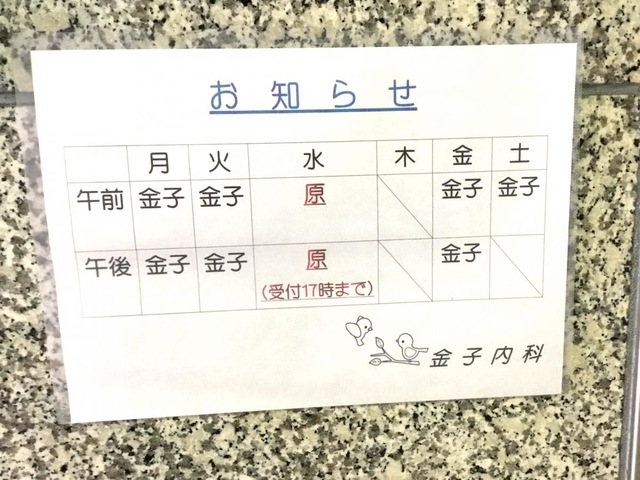 お知らせ
月 火 水 木 金 土
午前 金子 金子 原 金子 金子
午後 金子 金子 原 金子
(受付17時まで)
金子内科